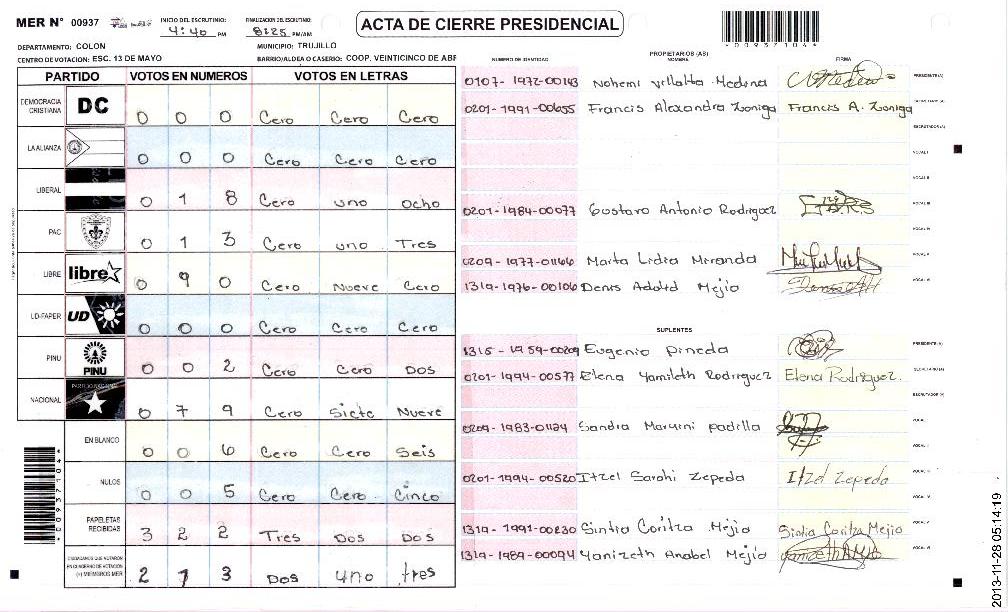 MER N° 00937
INICIO DEL ESCRUTINIO: 4:40 PM
FINALIZACION DEL ESCRUTINIO: 8:25 PM/AM
ACTA DE CIERRE PRESIDENCIAL
*00937104*
DEPARTAMENTO: COLON
MUNICIPIO: TRUJILLO
CENTRO DE VOTACION: ESC. 13 DE MAYO
BARRIO/ALDEA O CASERIO: COOP. VEINTICINCO DE ABR
PARTIDO VOTOS EN NUMEROS VOTOS EN LETRAS
DEMOCRACIA CRISTIANA DC 0 0 0 Cero Cero Cero
LA ALIANZA 0 0 0 Cero Cero Cero
LIBERAL 0 1 8 Cero uno ocho
PAC 0 1 3 Cero uno Tres
LIBRE libre 0 9 0 Cero Nueve Cero
UD-FAPER UD 0 0 0 Cero Cero Cero
PINU PINU 0 0 2 Cero Cero Dos
NACIONAL PARTIDO NACIONAL 0 7 9 Cero Siete Nueve
EN BLANCO 0 0 6 Cero Cero Seis
NULOS 0 0 5 Cero Cero Cinco
PAPELETAS RECIBIDAS 3 2 2 Tres Dos Dos
CIUDADANOS QUE VOTARON EN CUADERNO DE VOTACION (+) MIEMBROS MER 2 1 3 Dos uno tres
*00937104*
PROPIETARIOS (AS)
NUMERO DE IDENTIDAD NOMBRE FIRMA
0107-1972-00143 Nohemi Villalta Medina PRESIDENTE(A)
0201-1991-00655 Francis Alexandra Zooniga Francis A. Zooniga SECRETARIO(A)
ESCRUTADOR(A)
VOCAL I
VOCAL II
0201-1984-00077 Gustavo Antonio Rodriguez VOCAL III
VOCAL IV
0209-1977-01166 Marta Lidia Meranda VOCAL V
1319-1976-00106 Denis Adold Mejio VOCAL VI
SUPLENTES
1315-1959-00209 Eugenio Pineda PRESIDENTE(A)
0201-1994-00577 Elena Yamileth Rodriguez Elena Rodriguez. SECRETARIO(A)
ESCRUTADOR(A)
0209-1983-01124 Sandra Maryuri padilla VOCAL I
VOCAL II
0201-1994-00520 Itzel Sarahi Zepeda Itzel Zepeda VOCAL III
VOCAL IV
1319-1991-00230 Sintia Coritza Mejio Sintia Coritza Mejio VOCAL V
1319-1989-00094 Yanizeth Anabel Mejio VOCAL VI
2013-11-28 05:14:19